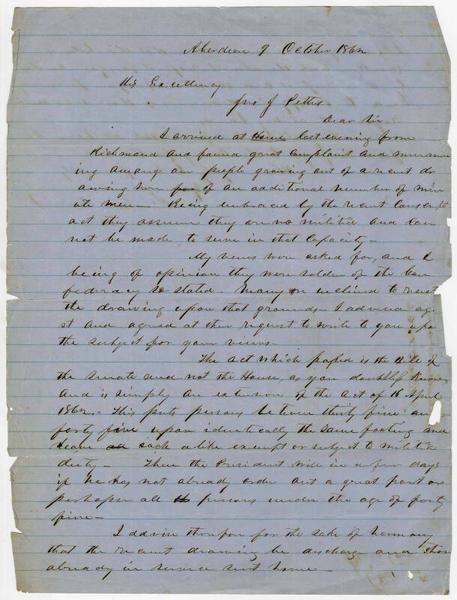 Aberdeen 9 October 1862
His Excellency
Jno J Pettus
Dear Sir
I arrived at Home last evening from
Richmond and found great complaint and murmur
ing among our people growing out of a recent
of an additional number of min
ute men. Being embraced by the recent Conscript
act they assume they are no militia and can
not be made to serve in that capacity -
My views were asked for, and I
being of opinion they were soldiers of the Con
federacy so stated. Many inclined to resist
the drawing upon that ground. I advised
and agreed at their request to write to you upon
the subject for your views.
The act which passed is the Bill of
the Senate and not the House, as you doubtless know
and is simply an extension of the act of 16 April
1862. This puts persons between thirty five and
forty five upon identically the same footing and
each alike exempt or subject to military
duty - Then the President will in a few days
if he has not already order out a great part or
perhaps all persons under the age of forty
five -
I advise therefore for the sake of harmony
that the recent drawing be discharged and those
already in service sent home -